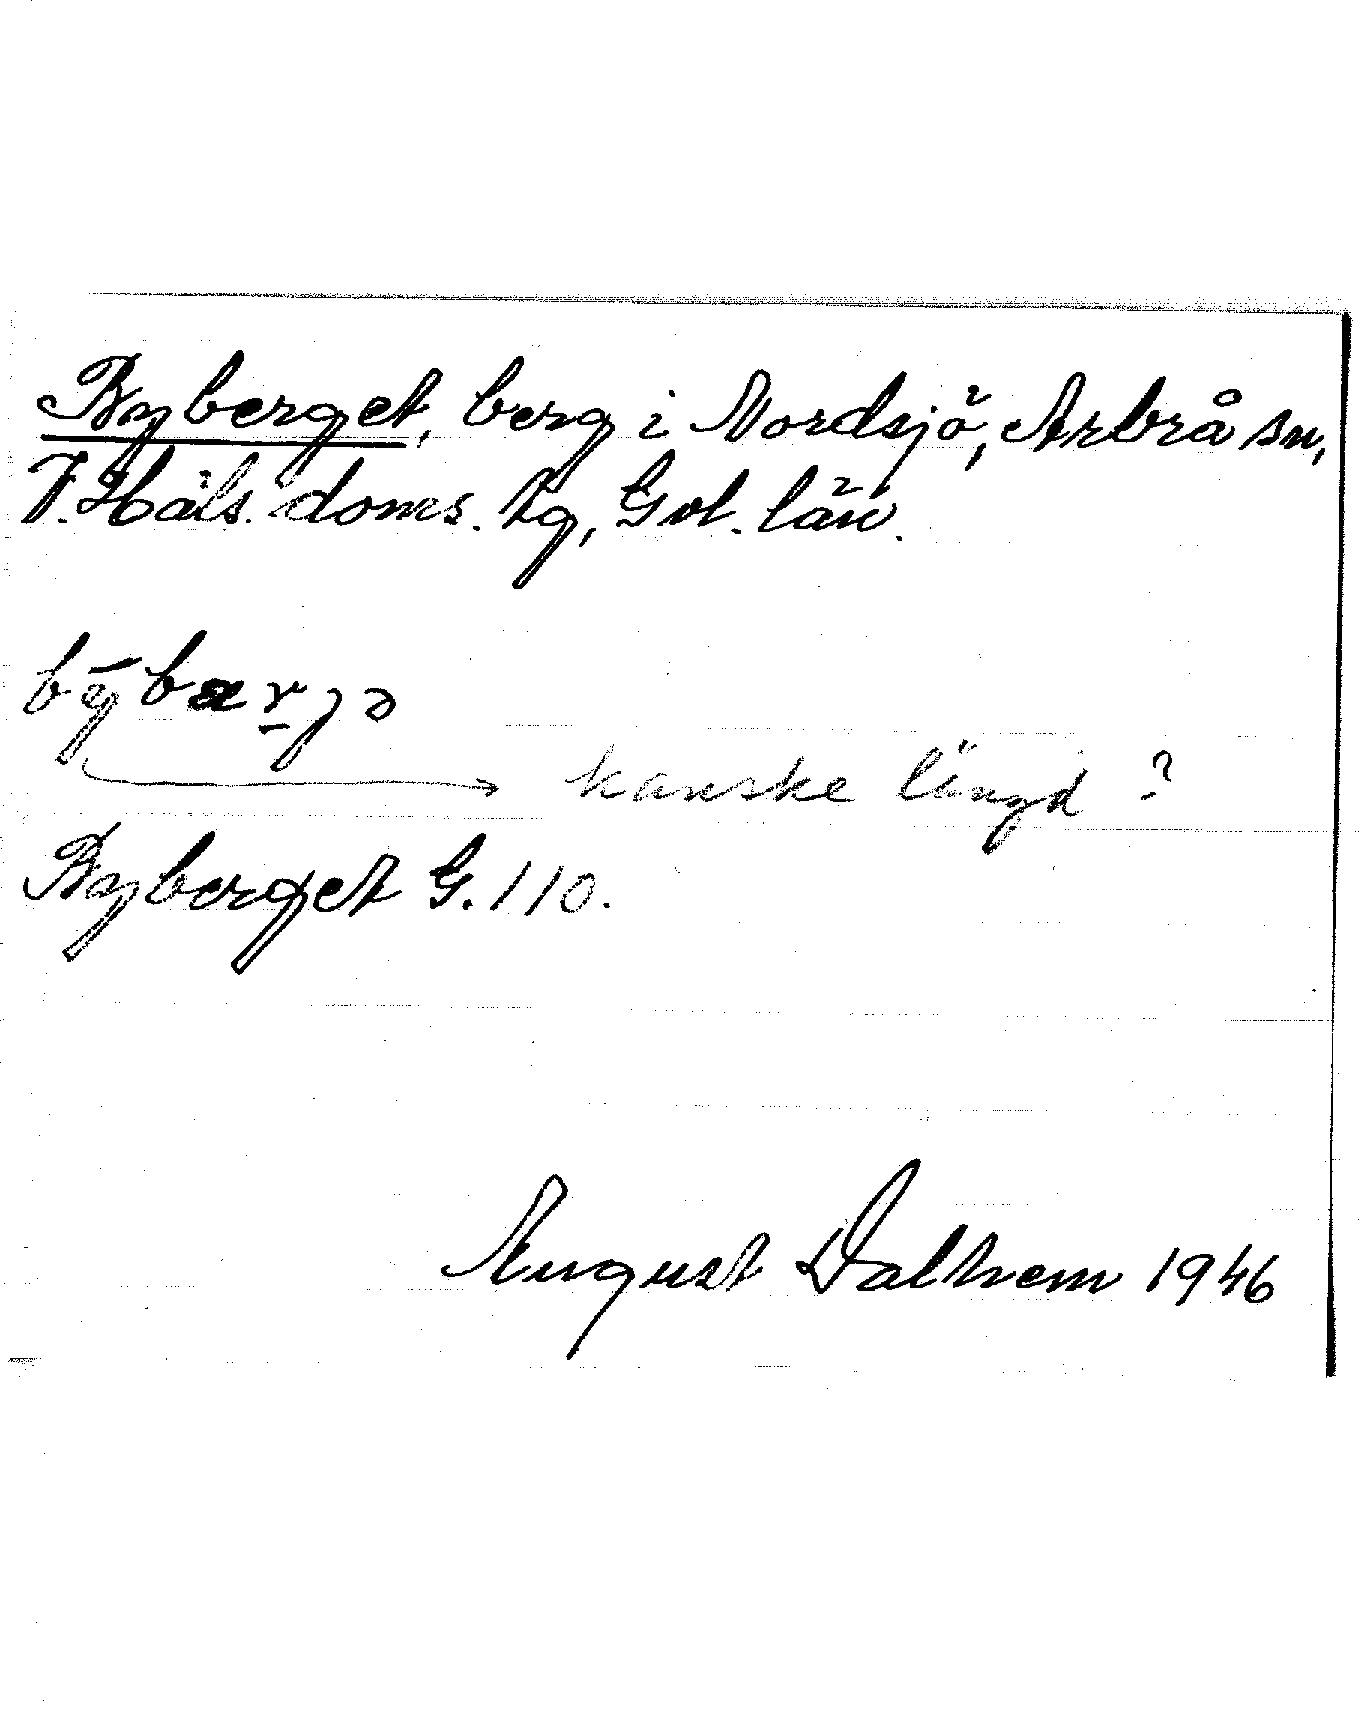 Byberget, berg i Nordsjö, Arbrå sn,
V. Häls. doms. tg, Gvl. län.
býbær̠jə
kanske längd ?
Byberget G. 110.
August Dalhem 1946